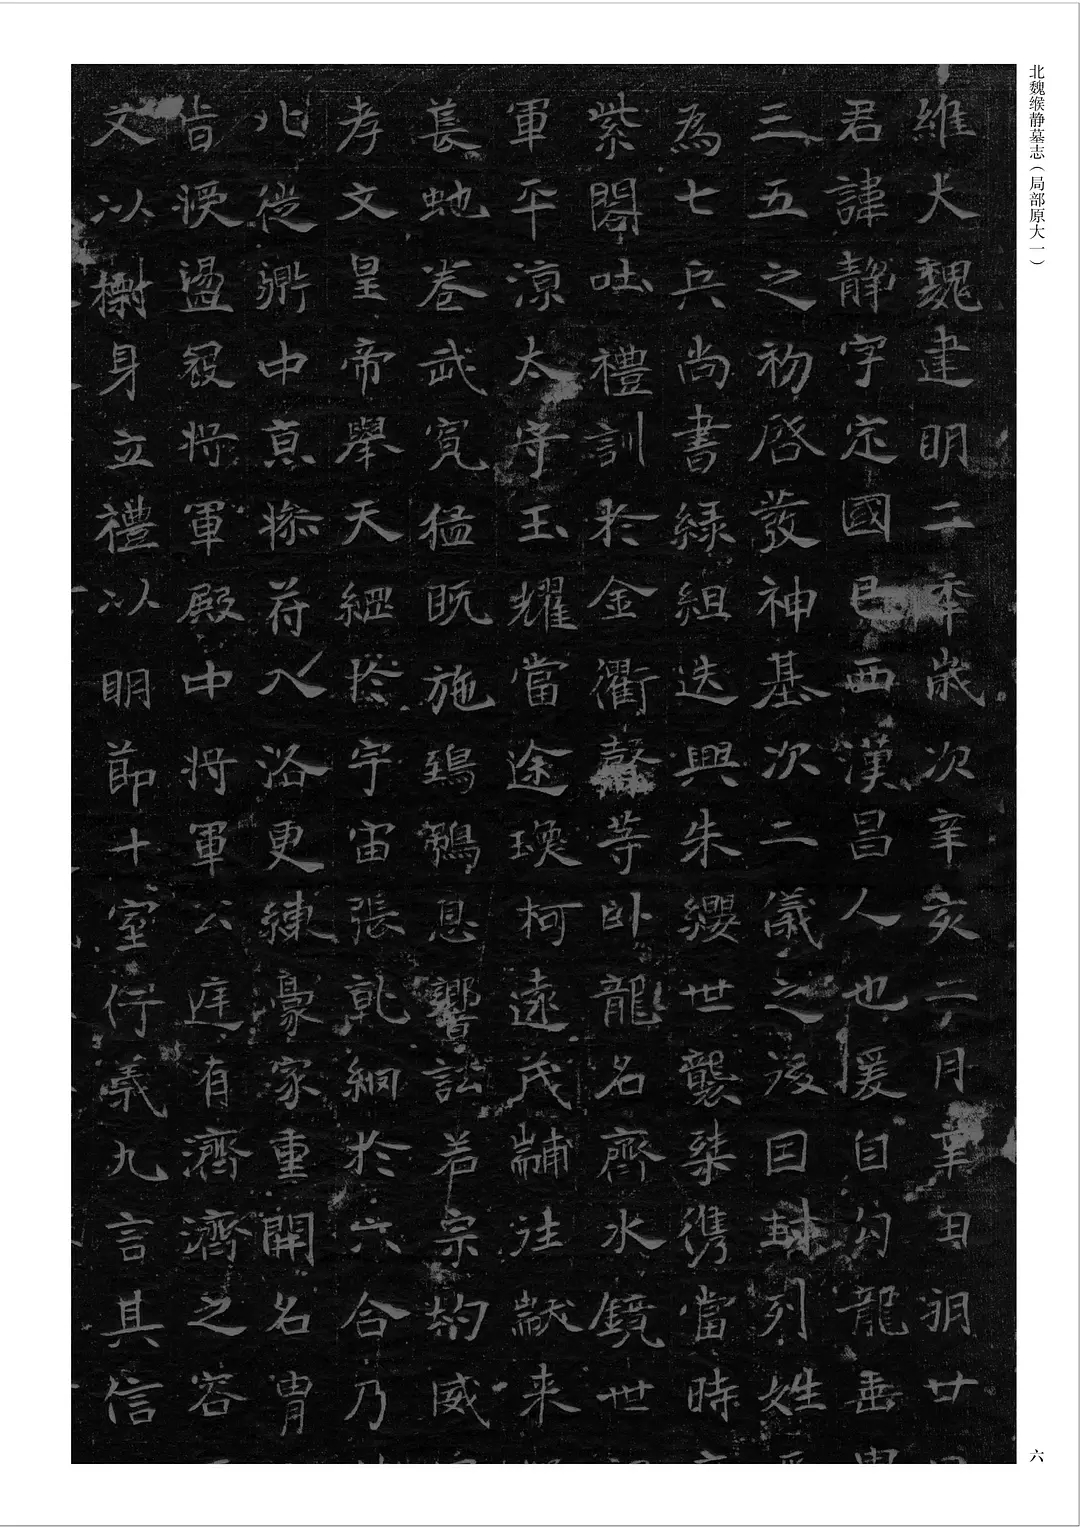 北魏缑静墓志（局部原大一）
維大魏建明二年歲次辛亥二月辛丑朔廿
君諱靜字定國巴西漢昌人也爰自勾龍
三五之初啓發神基次二儀之後因封列姓
為七兵尚書緑組迭興朱纓世襲桀携當時
紫閣吐禮訓於金衢聲等卧龍名齊水鏡世
軍平涼太守玉耀當途瑛柯遠茂黼往猷来
長虵卷武寃猛既施鵄鵶息響訟若宗均威
孝文皇帝舉天綱於宇宙張乹網於六合乃
北從衛中京條荷入洛更練豪家重開名胄
旨 盪冠将軍殿中将軍公庭有濟濟之容
文以樹身立禮以明節十室行義九言其信
六